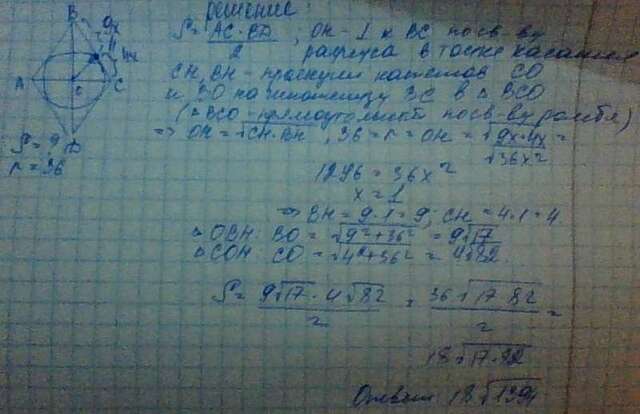 решение:
B
9x
H
4x
A
C
O
D
S = ?
r = 36
S = AC·BD / 2, OH - ⊥ к BC по св-ву
радиуса в точке касания
CH, BH - проекции катетов CO
и BO на гипотенузу BC в △ BCO
(△BCO - прямоугольный по св-ву ромба)
=> OH = √CH·BH, 36 = r = OH = √9x·4x =
√36x²
1296 = 36x²
x = 1
=> BH = 9·1 = 9; CH = 4·1 = 4
△ OBH: BO = √9²+36² = 9√17
△ COH: CO = √4²+36² = 4√82
S = 9√17·4√82 / 2 = 36√17·82 / 2 =
18√17·82
Ответ: 18√1394